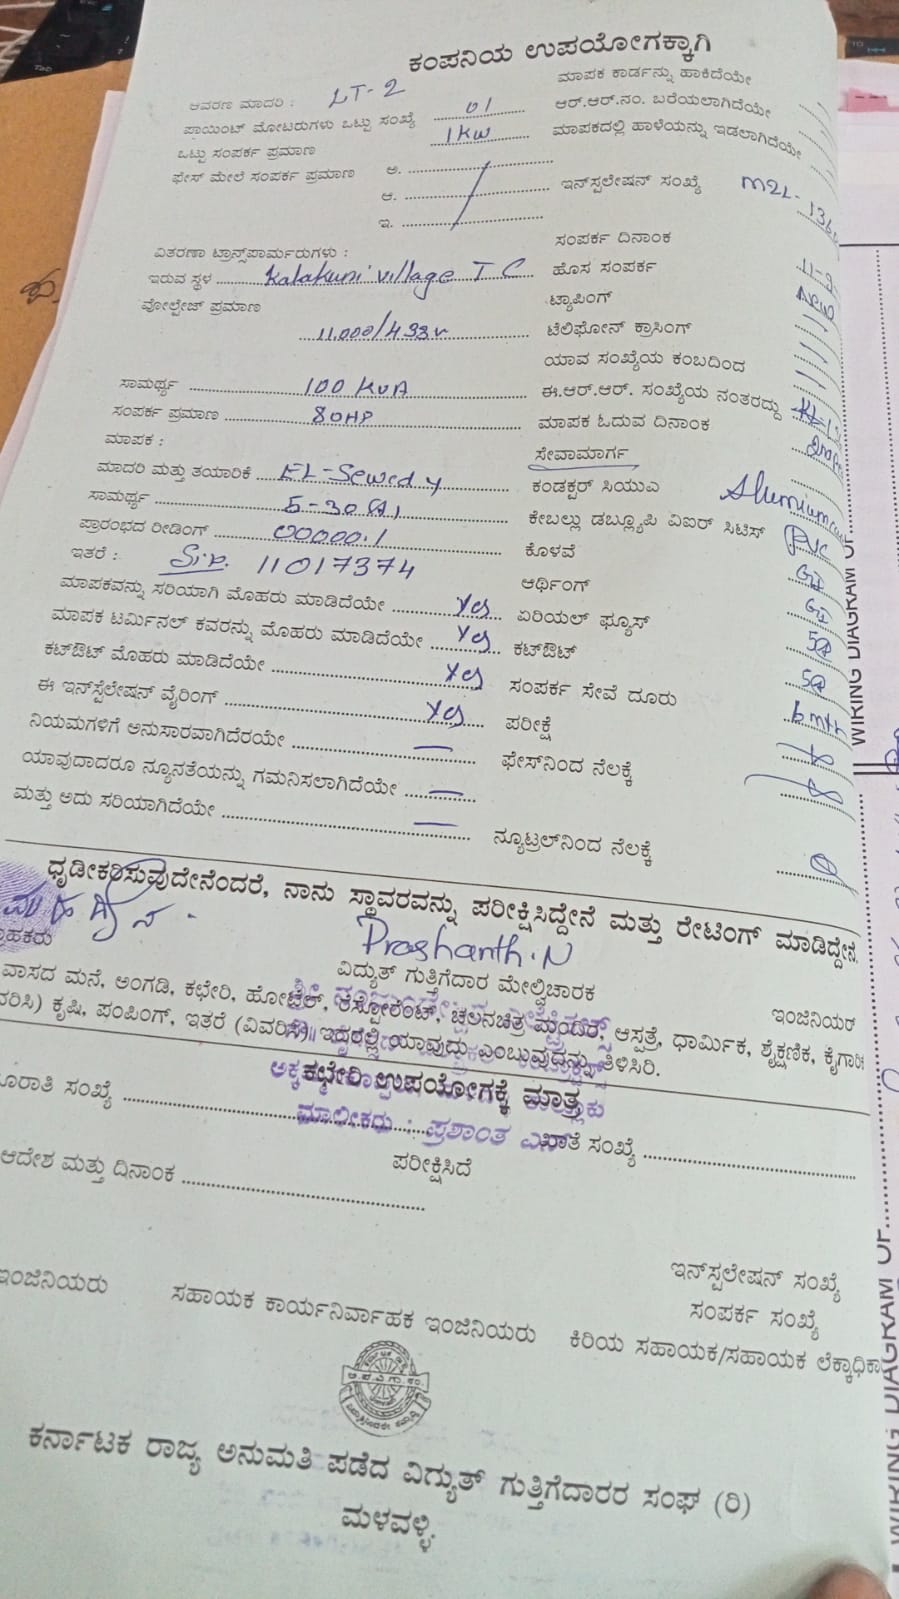 ಕಂಪನಿಯ ಉಪಯೋಗಕ್ಕಾಗಿ
ಆವರಣ ಮಾದರಿ : LT-2
ಮಾಪಕ ಕಾರ್ಡನ್ನು ಹಾಕಿದೆಯೇ
ಪಾಯಿಂಟ್ ಮೋಟರುಗಳು ಒಟ್ಟು ಸಂಖ್ಯೆ 01
ಆರ್.ಆರ್.ನಂ. ಬರೆಯಲಾಗಿದೆಯೇ
ಒಟ್ಟು ಸಂಪರ್ಕ ಪ್ರಮಾಣ 1kw
ಮಾಪಕದಲ್ಲಿ ಹಾಳೆಯನ್ನು ಇಡಲಾಗಿದೆಯೇ
ಫೇಸ್ ಮೇಲೆ ಸಂಪರ್ಕ ಪ್ರಮಾಣ ಅ.
ಆ.
ಇನ್‌ಸ್ಪಲೇಷನ್ ಸಂಖ್ಯೆ M2L-
ಇ.
ಸಂಪರ್ಕ ದಿನಾಂಕ
ವಿತರಣಾ ಟ್ರಾನ್ಸ್‌ಪಾರ್ಮರುಗಳು :
ಇರುವ ಸ್ಥಳ Kalakuni village T C
ಹೊಸ ಸಂಪರ್ಕ New
ವೋಲ್ಟೇಜ್ ಪ್ರಮಾಣ
ಟ್ಯಾಪಿಂಗ್
11,000/433v
ಟೆಲಿಫೋನ್ ಕ್ರಾಸಿಂಗ್
ಯಾವ ಸಂಖ್ಯೆಯ ಕಂಬದಿಂದ
ಸಾಮರ್ಥ್ಯ 100 KVA
ಈ.ಆರ್.ಆರ್. ಸಂಖ್ಯೆಯ ನಂತರದ್ದು
ಸಂಪರ್ಕ ಪ್ರಮಾಣ 80HP
ಮಾಪಕ ಓದುವ ದಿನಾಂಕ
ಮಾಪಕ :
ಸೇವಾಮಾರ್ಗ
ಮಾದರಿ ಮತ್ತು ತಯಾರಿಕೆ EL-Sewedy
ಕಂಡಕ್ಟರ್ ಸಿಯುಎ Aluminium
ಸಾಮರ್ಥ್ಯ 5-30(A)
ಕೇಬಲ್ಲು ಡಬ್ಲ್ಯೂಪಿ ವಿಐಆರ್ ಸಿಟಿಸ್ PVC
ಪ್ರಾರಂಭದ ರೀಡಿಂಗ್ 00000.1
ಕೊಳವೆ GI
ಇತರೆ : 11017374
ಆರ್ಥಿಂಗ್ GI
ಮಾಪಕವನ್ನು ಸರಿಯಾಗಿ ಮೊಹರು ಮಾಡಿದೆಯೇ Yes
ಏರಿಯಲ್ ಫ್ಯೂಸ್
ಮಾಪಕ ಟರ್ಮಿನಲ್ ಕವರನ್ನು ಮೊಹರು ಮಾಡಿದೆಯೇ Yes
ಕಟ್‌ಔಟ್
ಕಟ್‌ಔಟ್ ಮೊಹರು ಮಾಡಿದೆಯೇ Yes
ಸಂಪರ್ಕ ಸೇವೆ ದೂರು
ಈ ಇನ್‌ಸ್ಪೆಲೇಷನ್ ವೈರಿಂಗ್ Yes
ಪರೀಕ್ಷೆ
ನಿಯಮಗಳಿಗೆ ಅನುಸಾರವಾಗಿದೆರಯೇ —
ಫೇಸ್‌ನಿಂದ ನೆಲಕ್ಕೆ
ಯಾವುದಾದರೂ ನ್ಯೂನತೆಯನ್ನು ಗಮನಿಸಲಾಗಿದೆಯೇ —
ಮತ್ತು ಅದು ಸರಿಯಾಗಿದೆಯೇ —
ನ್ಯೂಟ್ರಲ್‌ನಿಂದ ನೆಲಕ್ಕೆ
ಧೃಡೀಕರಿಸುವುದೇನೆಂದರೆ, ನಾನು ಸ್ಥಾವರವನ್ನು ಪರೀಕ್ಷಿಸಿದ್ದೇನೆ ಮತ್ತು ರೇಟಿಂಗ್ ಮಾಡಿದ್ದೇನೆ.
Prashanth.N
ವಿದ್ಯುತ್ ಗುತ್ತಿಗೆದಾರ ಮೇಲ್ವಿಚಾರಕ
ಇಂಜಿನಿಯರ್
ವಾಸದ ಮನೆ, ಅಂಗಡಿ, ಕಛೇರಿ, ಹೋಟೆಲ್, ರೆಸ್ಟೋರೆಂಟ್, ಚಲನಚಿತ್ರ ಮಂದಿರ, ಆಸ್ಪತ್ರೆ, ಧಾರ್ಮಿಕ, ಶೈಕ್ಷಣಿಕ,
ಕೃಷಿ, ಪಂಪಿಂಗ್, ಇತರೆ (ವಿವರಿಸಿ) ಇದ್ದರಲ್ಲಿ ಯಾವುದು ಎಂಬುವುದನ್ನು ತಿಳಿಸಿರಿ.
ಕಛೇರಿ ಉಪಯೋಗಕ್ಕೆ ಮಾತ್ರ
ಮಾಲೀಕರು : ಪ್ರಶಾಂತ ಎನ್
ಸಂಖ್ಯೆ
ಖಾತೆ ಸಂಖ್ಯೆ
ಆದೇಶ ಮತ್ತು ದಿನಾಂಕ
ಪರೀಕ್ಷಿಸಿದೆ
ಇನ್‌ಸ್ಪಲೇಷನ್ ಸಂಖ್ಯೆ
ಸಂಪರ್ಕ ಸಂಖ್ಯೆ
ಇಂಜಿನಿಯರು
ಸಹಾಯಕ ಕಾರ್ಯನಿರ್ವಾಹಕ ಇಂಜಿನಿಯರು
ಕಿರಿಯ ಸಹಾಯಕ/ಸಹಾಯಕ
ಕರ್ನಾಟಕ ರಾಜ್ಯ ಅನುಮತಿ ಪಡೆದ ವಿದ್ಯುತ್ ಗುತ್ತಿಗೆದಾರರ ಸಂಘ (ರಿ)
ಮಳವಳ್ಳಿ.
WIRING DIAGRAM OF
WIRING DIAGRAM OF